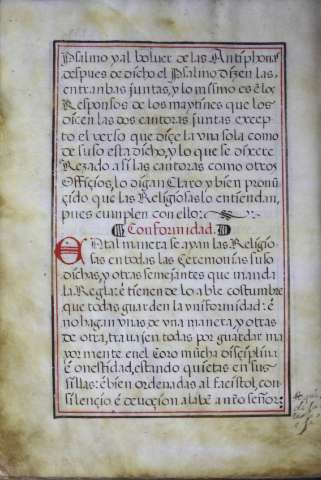 Psalmo y al boluer de las Antiphona
despues de dicho el Psalmo dizen las,
entranbas juntas, y lo mismo es ẽ los
Responsos de los maytines que los
dizen las dos cantoras juntas excep
to el verso que diçe la vna sola como
de suso esta dicho, y lo que se dixere
Rezado asi las cantoras como otros
Offiçios, lo digan Claro y bien pronũ
çido que las Religiosas lo entiendan,
pues cumplen con ello:
Conformidad.
En tal maneta se ayan las Religio
sas en todas las Çeremonias suso
dichas, y otras semejantes que manda
la Regla: ẽ tienen de lo able costumbre
que todas guarden la vniformidad: ẽ
no hagan vnas de vna maneta, y otras
de otra, trauajen todas por guardar ma
yor mente en el Coro mũcha disçiplina
ẽ onestidad, estando quietas en sus
sillas: ẽ bien ordenadas al façistol, con
silençio ẽ deuoçion alabẽ a nrõ señor: